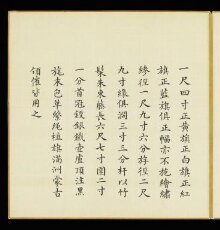 一尺四寸正黃旗正白旗正紅
旗正藍旗俱正幅亦不施繪繡
緣徑一尺九寸六分斿徑二尺
九寸緣俱濶三寸三分杆以竹
髹朱束籐長六尺七寸圍二寸
一分首冠鍍銀鐵壺盧頂注黑
旄朱包革繫繩植旗滿洲蒙古
領催皆用之